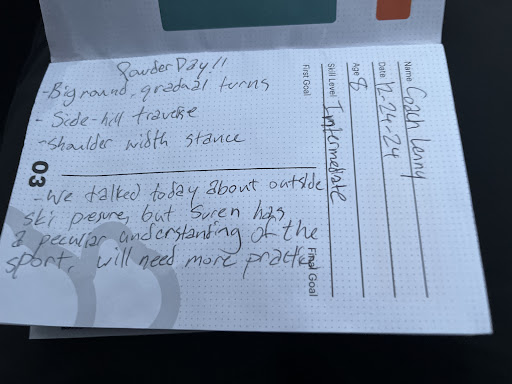 Name Coach Lenny
Date 12-24-24
Age 8
Skill Level Intermediate
First Goal
Powder Day!!
- Big round, gradual turns
- Side-hill traverse
- Shoulder width stance
03
Final Goal
- We talked today about outside
ski presure, but Suren has
a peculiar understanding of the
sport. will need more practice